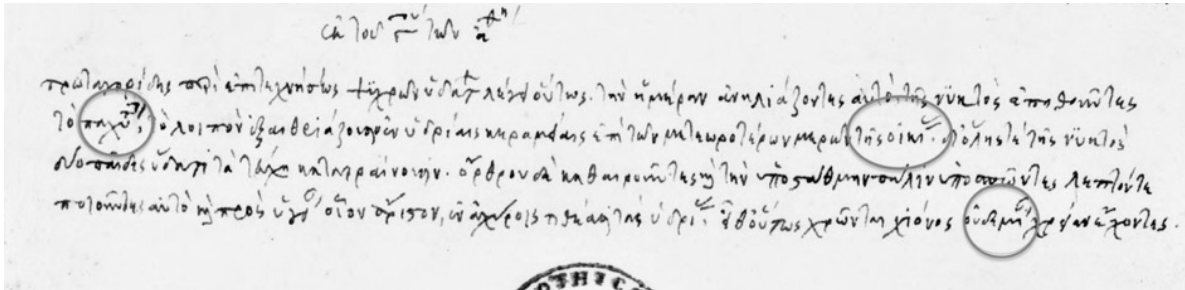 ἐκ τοῦ γ΄ τῶν
πρωταγορίδης περὶ ἐπιτεχνήσεως ψυχρῶν ὑδάτ λέγει οὕτως. τὴν ἡμέραν ἀνηλιάζοντες αὐτὸ τῆς νυκτὸς ἀπηθοῦντες
τὸ παχύτ τὸ λοιπὸν ἐξαιθριάζουσιν ἐν ὑδρίαις κεραμέαις ἐπὶ τῶν μετεωροτέρων μερῶν τῆς οἰκι. δι' ὅλης τε τῆς νυκτὸς
δύο παῖδες ὕδατι τὰ τεύχ καταρραίνουσιν. ὄρθρου δὲ καθαιροῦντες καὶ τὴν ὑποστάθμην πάλιν ὑποσπῶντες λεπτόν τε
ποιοῦντες αὐτὸ καὶ πρὸς ὑγ οἷον ἄριστον, ἐν ἀχύροις τιθέασι τὰς ὑδρι. εἶθ' οὕτως χρῶνται χιόνος χρείαν ἔχοντες.